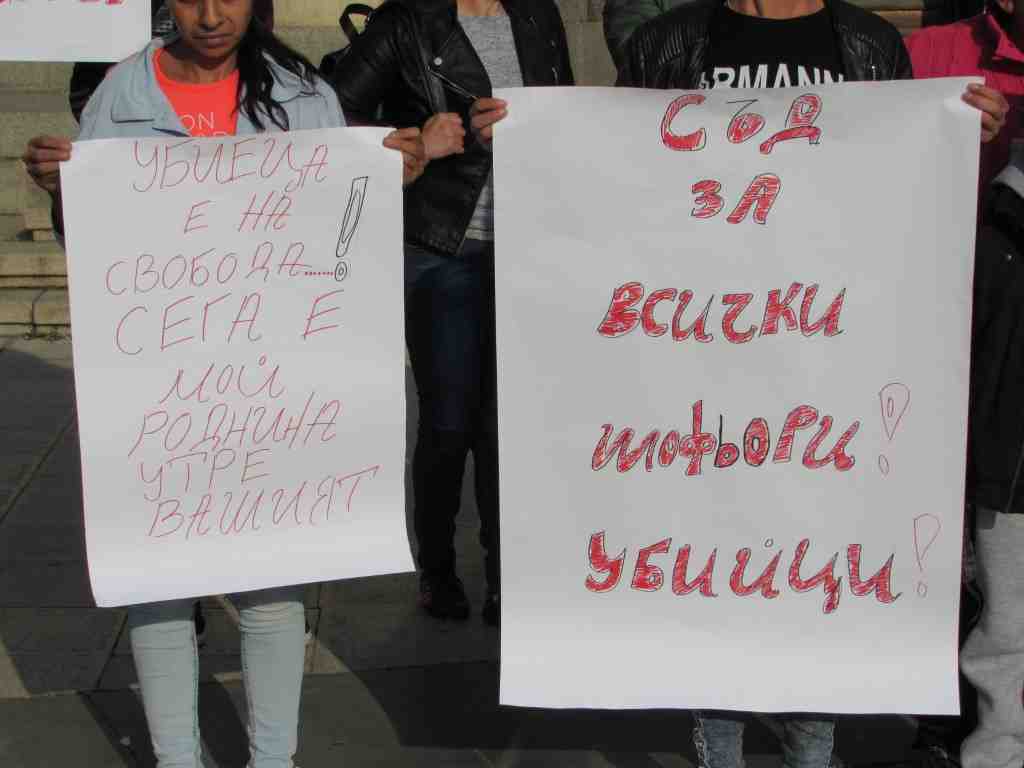 УБИЕЦА
Е НА
СВОБОДА.......!
СЕГА Е
МОЙ
РОДНИНА
УТРЕ
ВАШИЯТ
СЪД
ЗА
ВСИЧКИ
ШОФЬОРИ!
УБИЙЦИ!
ON